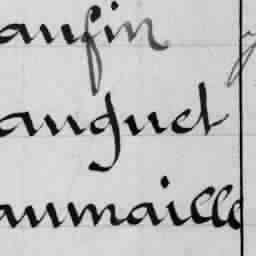 aufin
auguet
aumaille